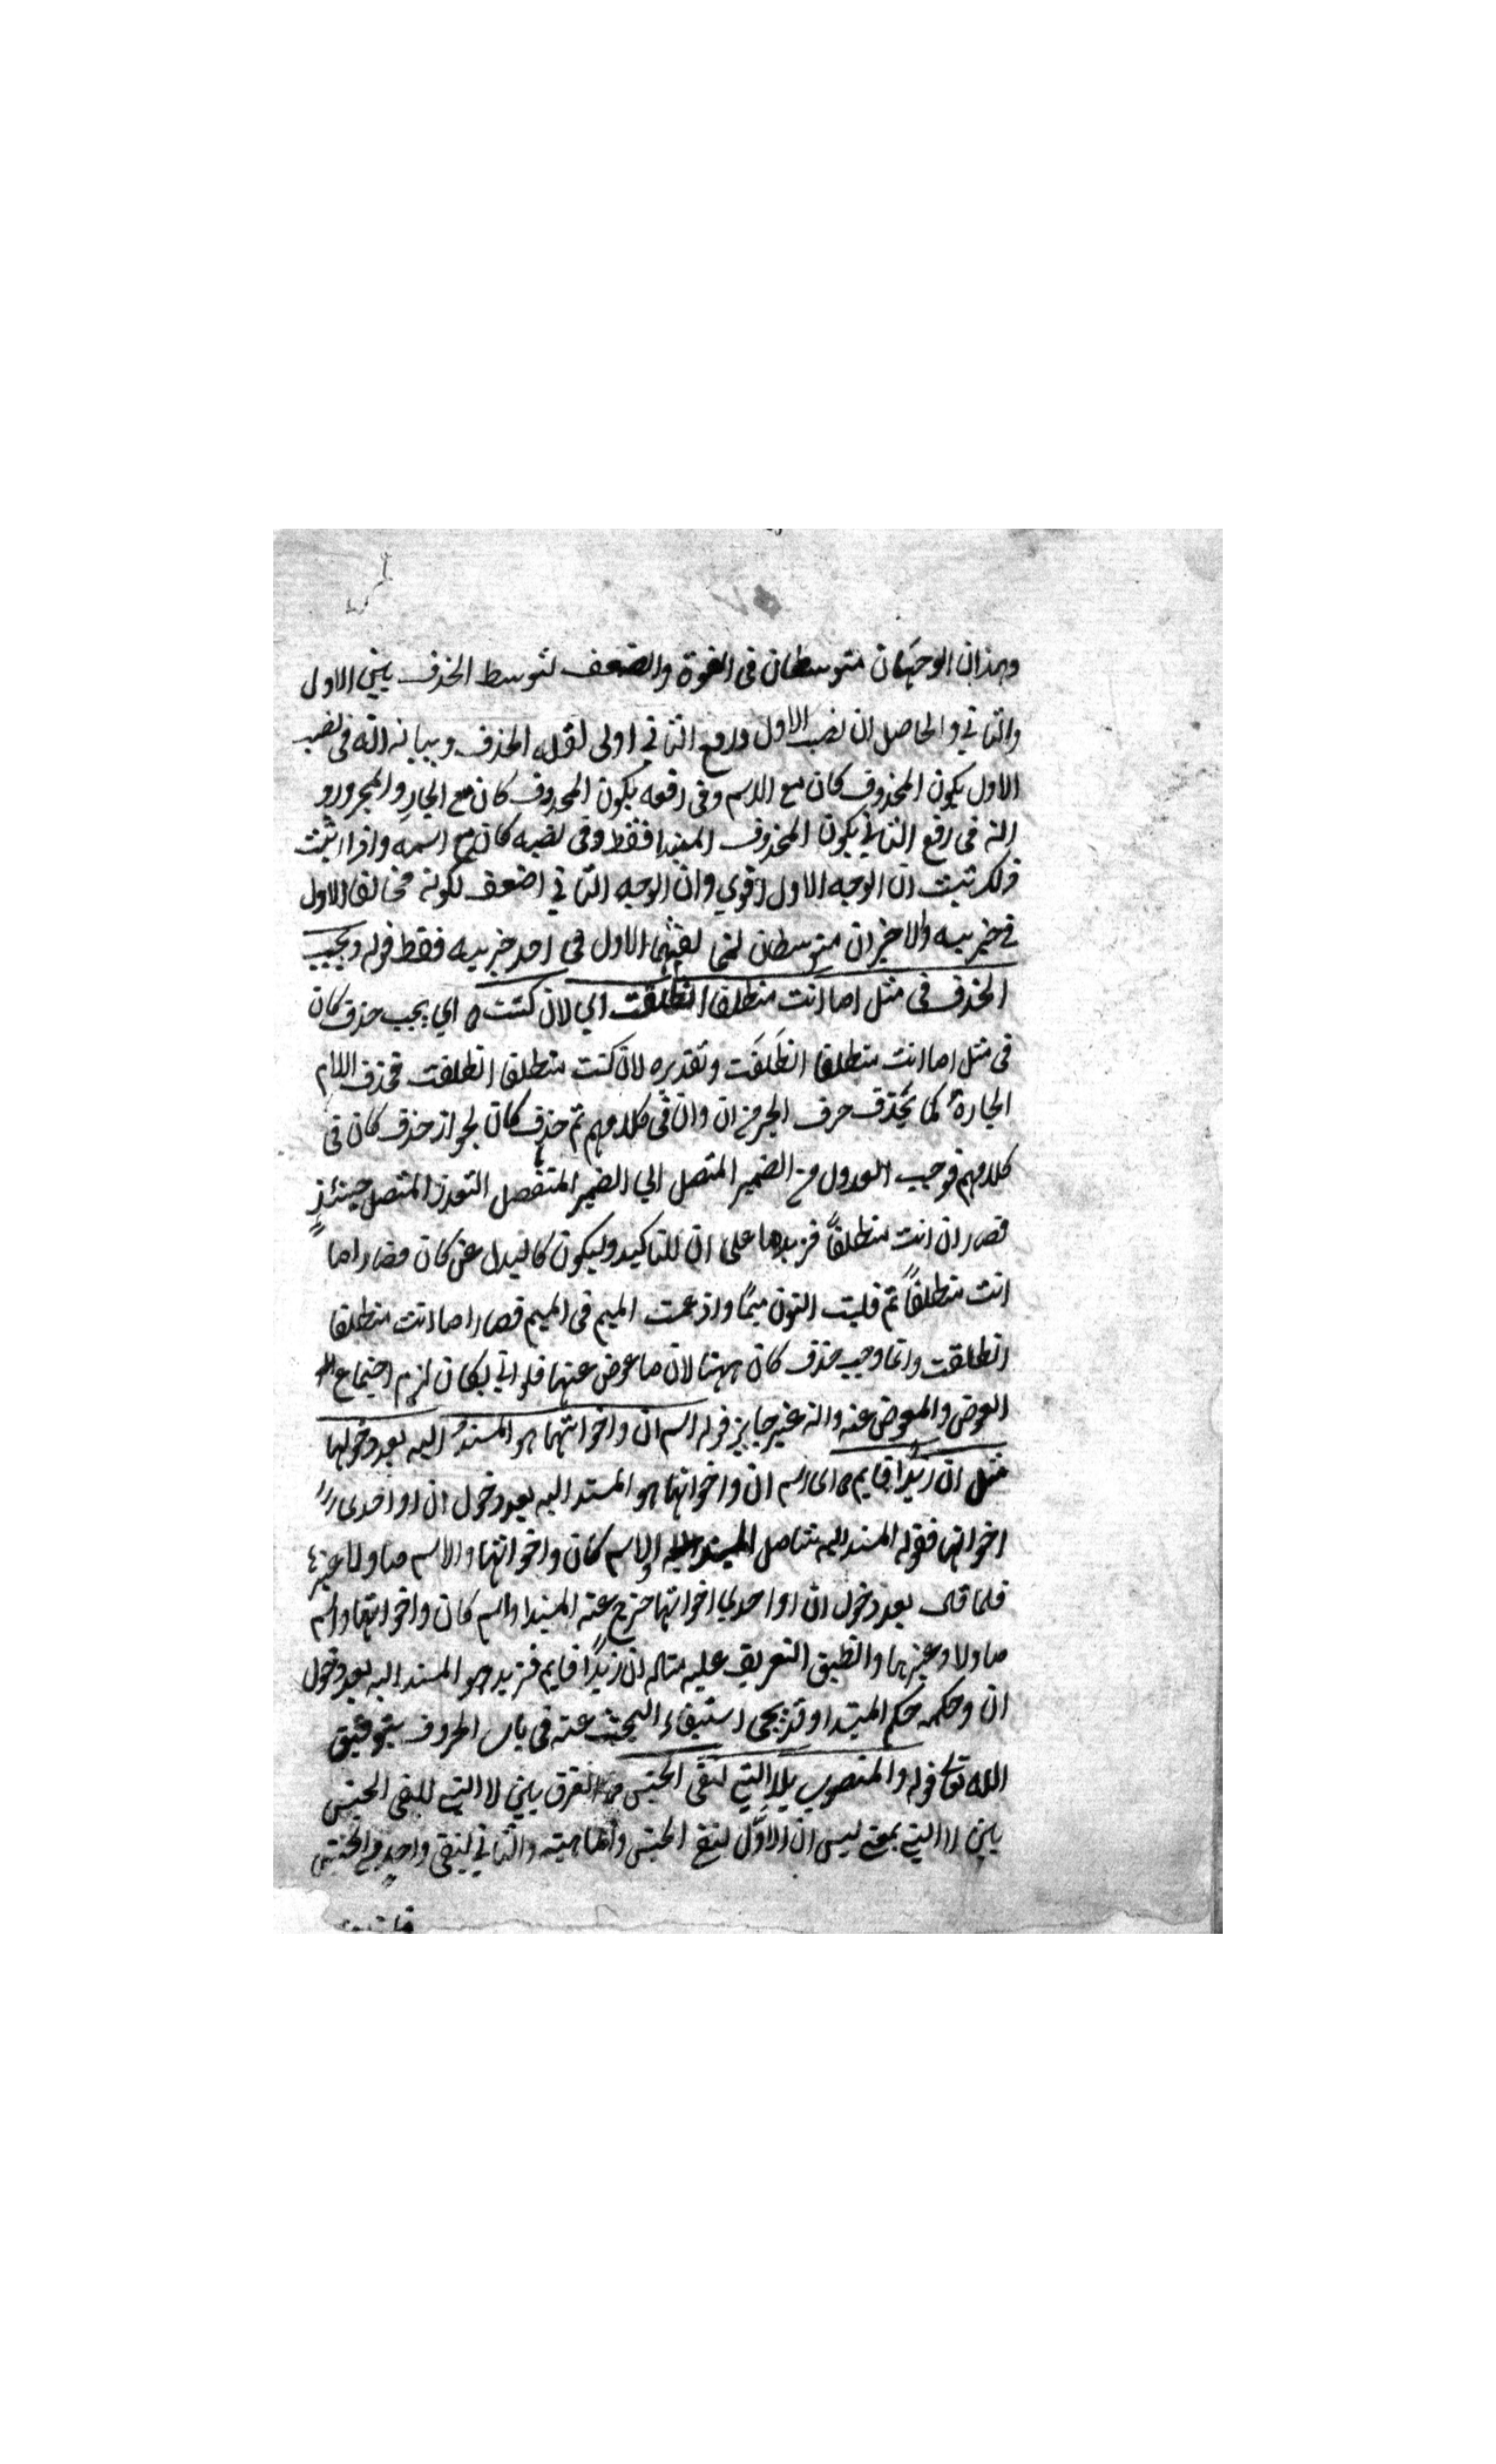 وهذان الوجهان متوسطان في القوة والضعف لتوسط الحذف بين الاول
والثاني والحاصل ان نصب الاول ورفع الثاني اولى لقلة الحذف وبيانه انه في نصب
الاول يكون المحذوف كان مع الاسم وفي رفعه يكون المحذوف كان مع الجار والمجرور و
انه في رفع الثاني يكون المحذوف المبتدا فقط وفي نصبه كان مع اسمه واذا ثبت
ذلك ثبت ان الوجه الاول اقوي وان الوجه الثاني اضعف لكونه مخالفا للاول
في خبريه والاخيران متوسطان الاول في احد خبريه فقط قوله ويجب
الحذف في مثل اما انت منطلقا انطلقت اي لان كنت ه اي يجب حذف كان
في مثل اما انت منطلقا انطلقت وتقديره لان كنت منطلقا انطلقت فحذف اللام
الجارة كما يحذف حرف الجر من ان وان في كلامهم ثم حذف كان لجواز حذف كان في
كلامهم فوجب العدول من الضمير المتصل الي الضمير المنفصل لتعذر المتصل حينئذ
فصار ان انت منطلقا فزيد ما على ان للتاكيد وليكون كالبدل عن كان فصار اما
انت منطلقا ثم قلبت النون ميما وادغمت الميم في الميم فصار اما انت منطلقا
انطلقت وانما وجب حذف كان ههنا لان ما عوض عنها فلو اتي بكان لزم اجتماع
العوض والمعوض عنه وانه غير جايز قوله اسم ان واخواتها هو المسند اليه بعد دخولها
مثل ان زيدا قايم ه اي اسم ان واخواتها هو المسند اليه بعد دخول ان او احدى
اخواتها فقوله المسند اليه شامل لاسم كان واخواتها ولاسم ما ولا وغيرها
فلما قال بعد دخول ان او احدي اخواتها خرج عنه المبتدا واسم كان واخواتها واسم
ما ولا وغيرها وانطبق التعريف عليه مثاله ان زيدا قايم فزيد هو المسند اليه بعد دخول
ان وحكمه حكم المبتدا وقد يجى استيفاء البحث عنه في باب الحروف بتوفيق
الله تعالى قوله والمنصوب بلا التي لنفي الجنس الفرق بين لا التي لنفي الجنس
بين لا التي بمعنى ليس ان الاول لنفي الجنس والماهية والثاني لنفي واحد من الجنس